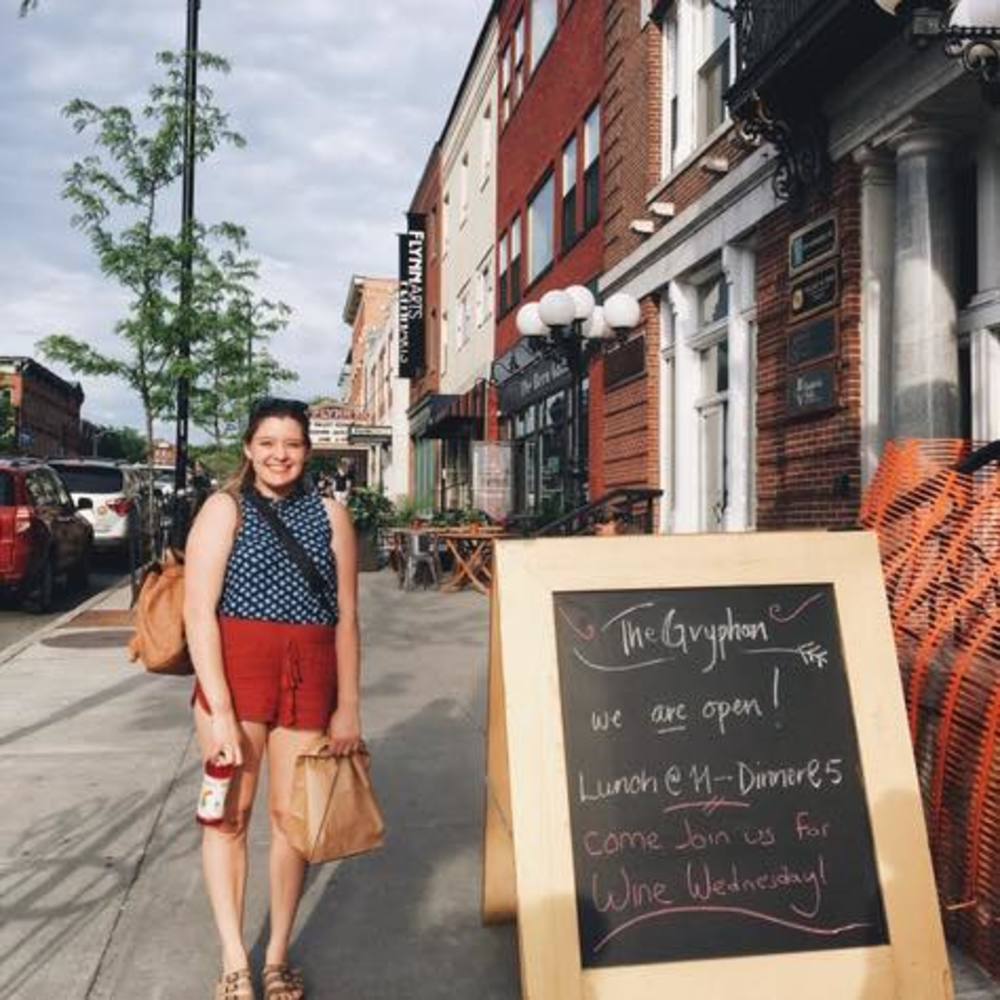 FLYNN ARTS
FLYNN
The Gryphon
we are open!
Lunch @ 11 -- Dinner @ 5
come Join us for
Wine Wednesday!